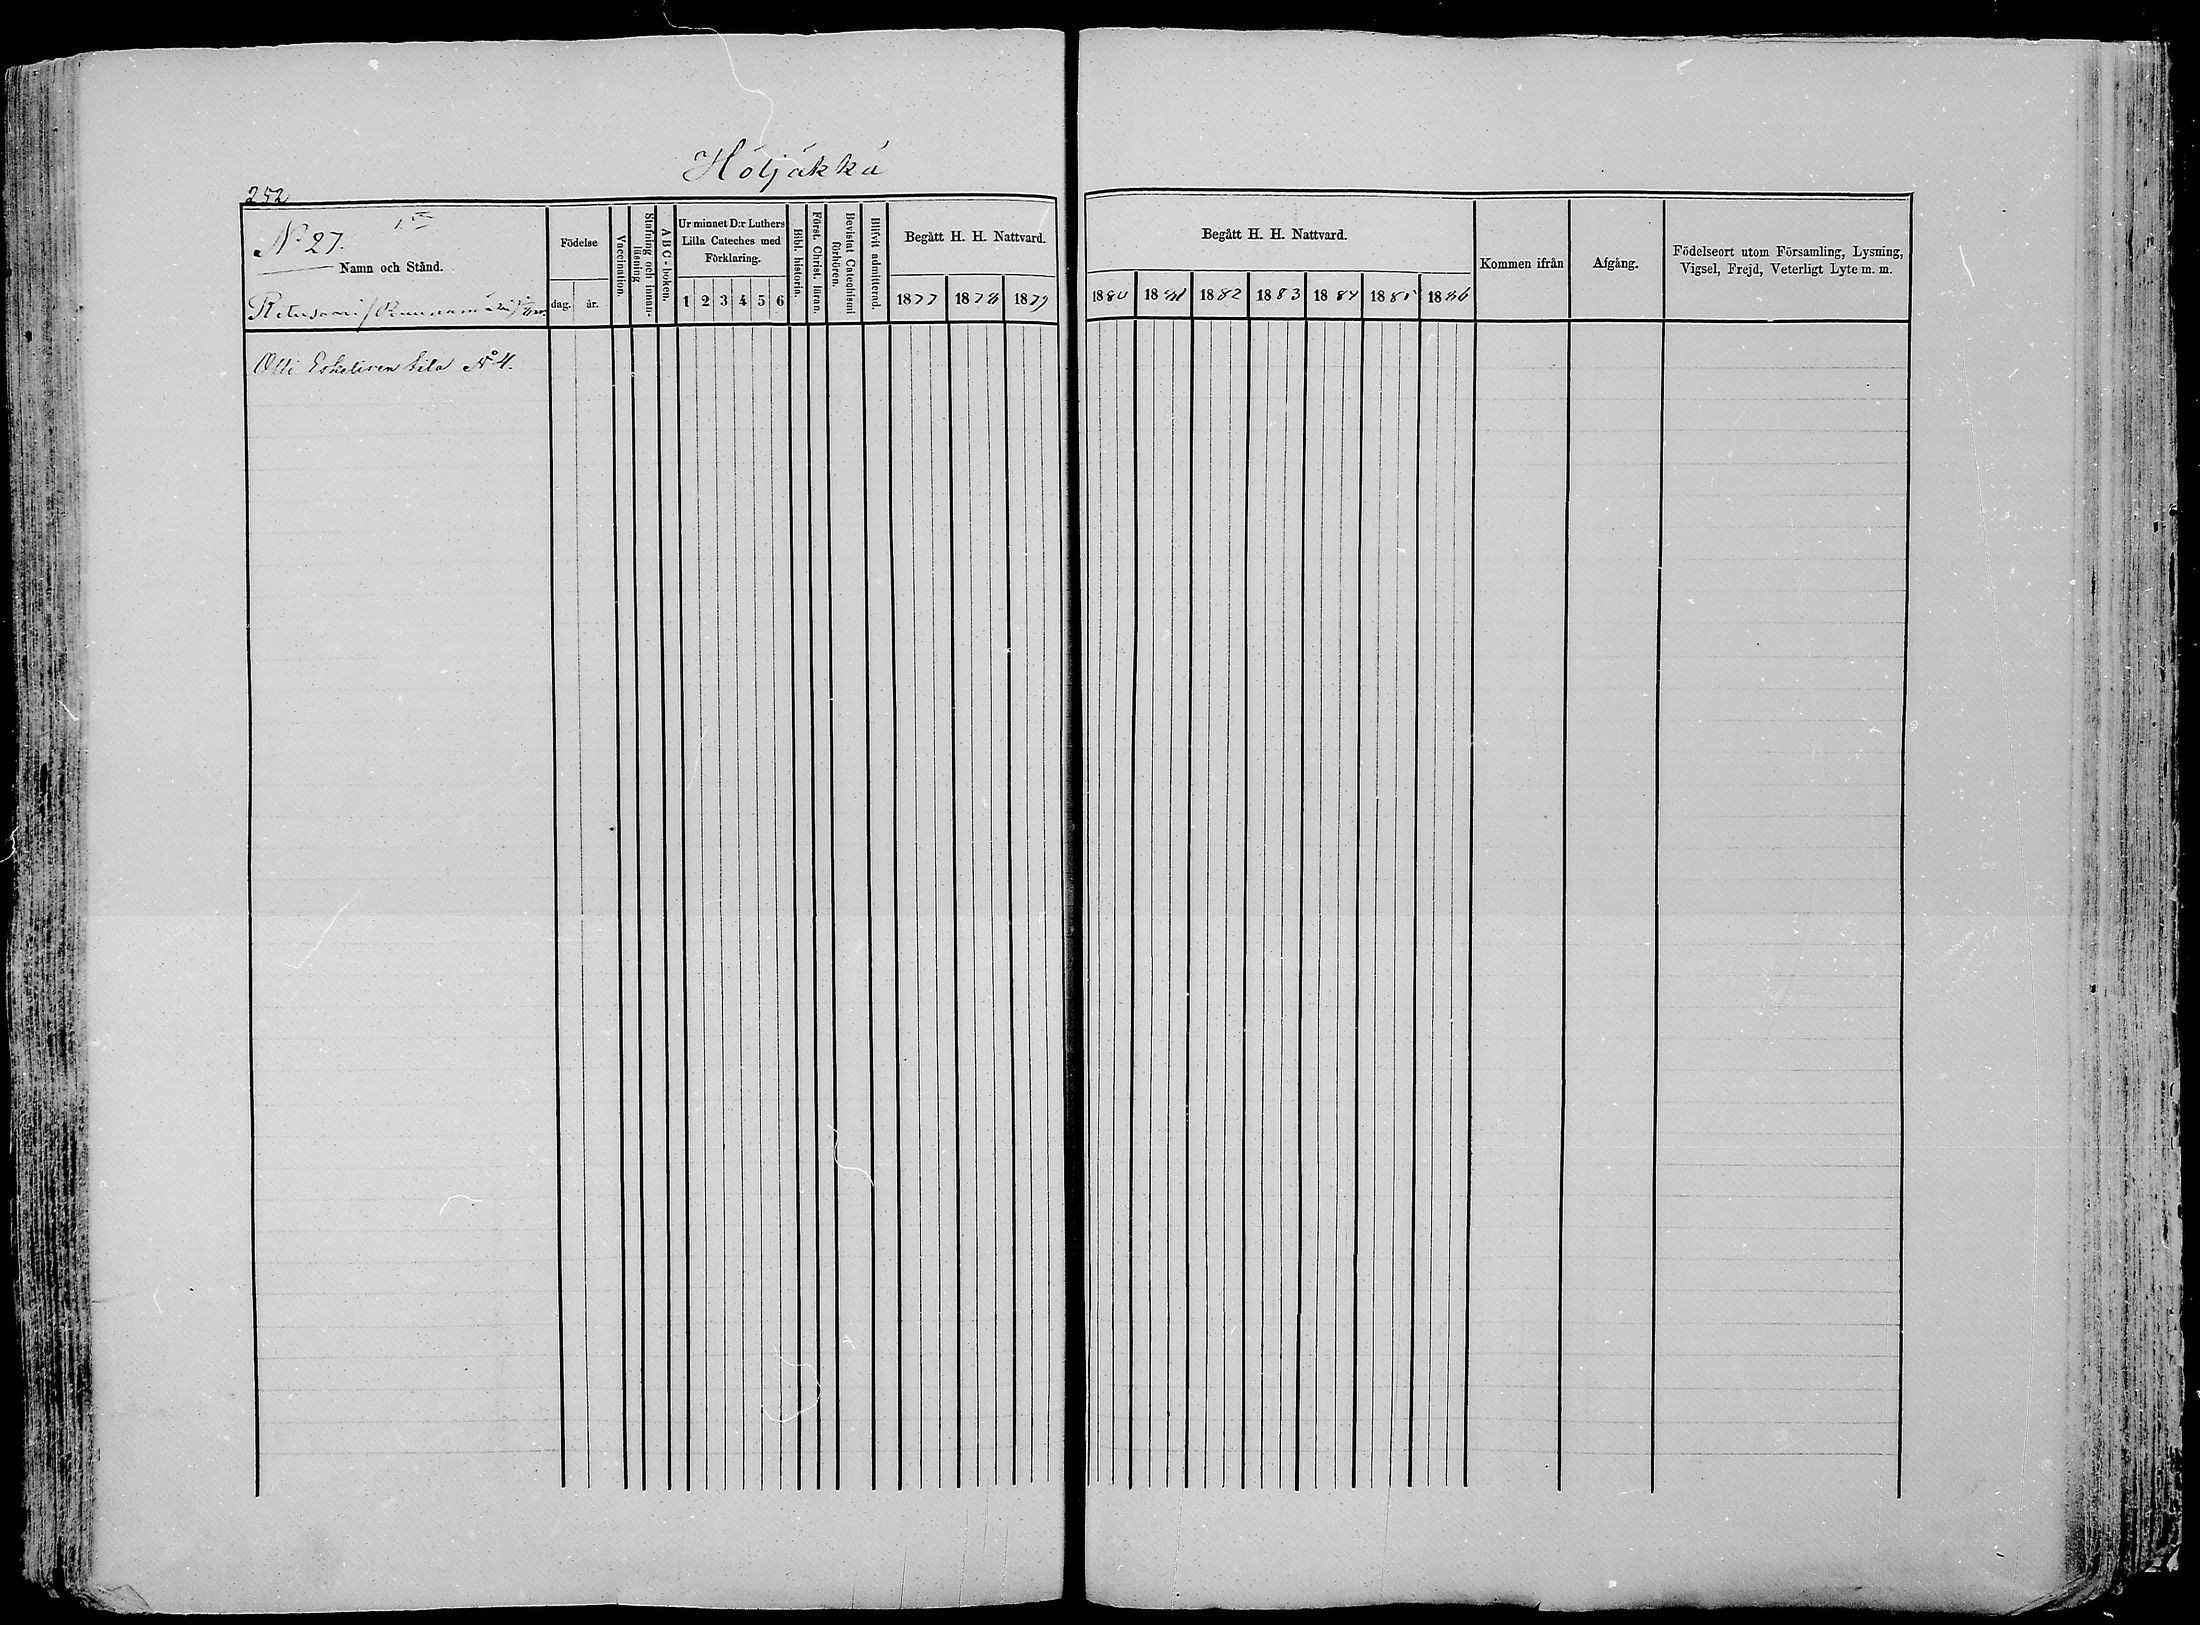 Höljäkkä
252
N:o 27.
Namn och Stånd.
Födelse
dag.
år.
Vaccination.
Stafning och innan-
läsning
A B C - boken.
Ur minnet D:r Luthers
Lilla Cateches med
Förklaring.
1 2 3 4 5 6
Bibl. historia.
Först. Christ. läran.
Bevistat Catechismi
förhören.
Blifvit admitterad.
Begått H. H. Nattvard.
1877 1878 1879
Begått H. H. Nattvard.
1880 1881 1882 1883 1884 1885 1886
Kommen ifrån
Afgång.
Födelseort utom Församling, Lysning,
Vigsel, Frejd, Veterligt Lyte m. m.
Olli Eskelisen tila No 4.